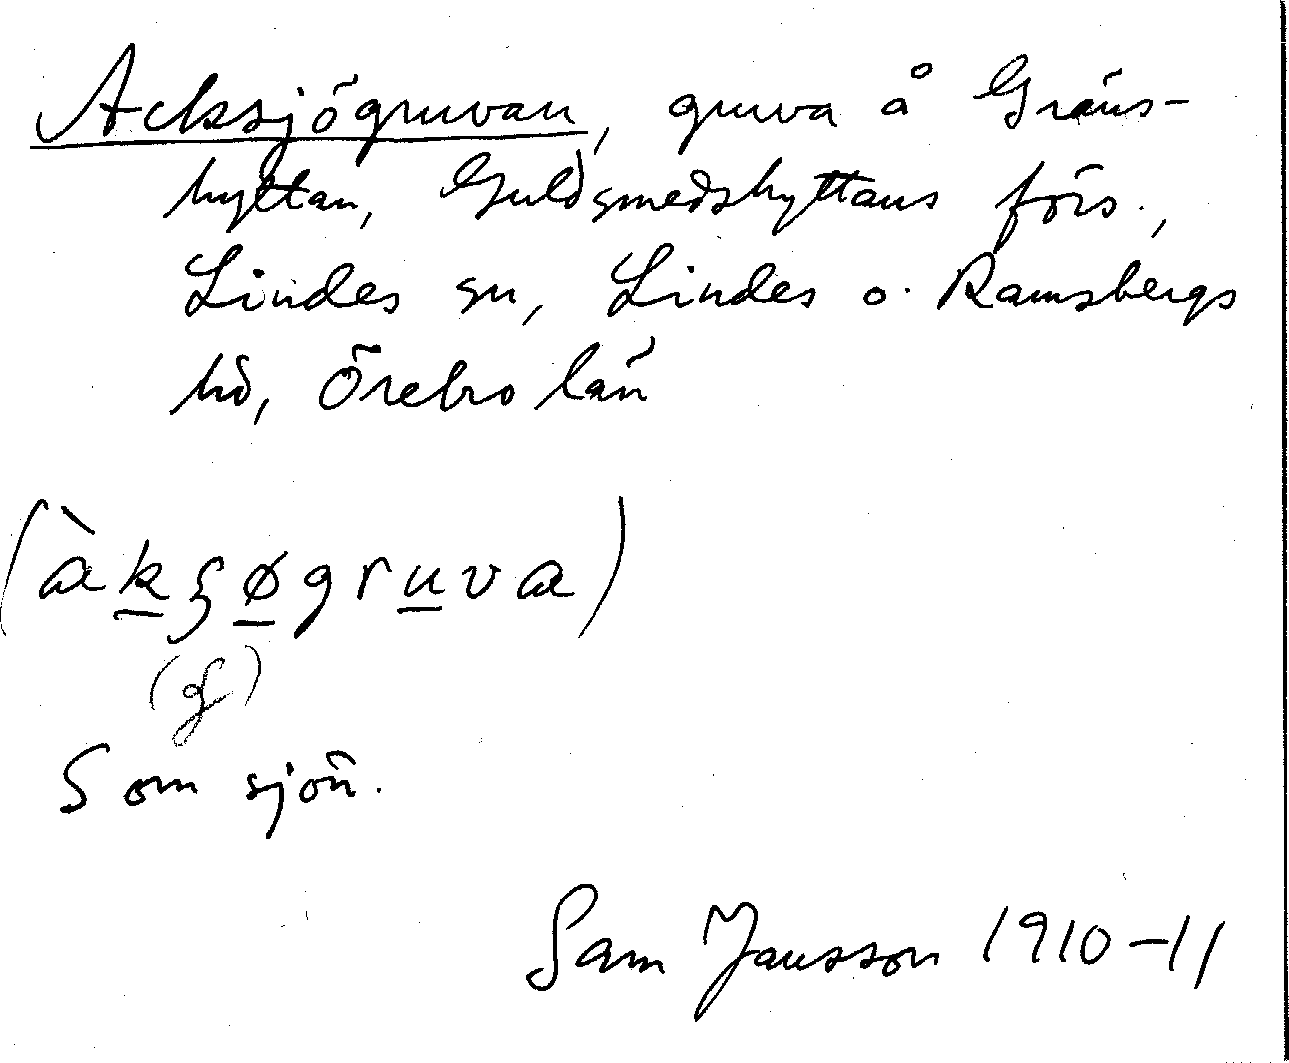 Acksjögruvan, gruva å Gräns-
hyttan, Guldsmedshyttans förs.,
Lindes sn, Lindes o. Ramsbergs
hd, Örebro län
(àkʂøgruva)
Som sjön.
Sam Jansson 1910-11